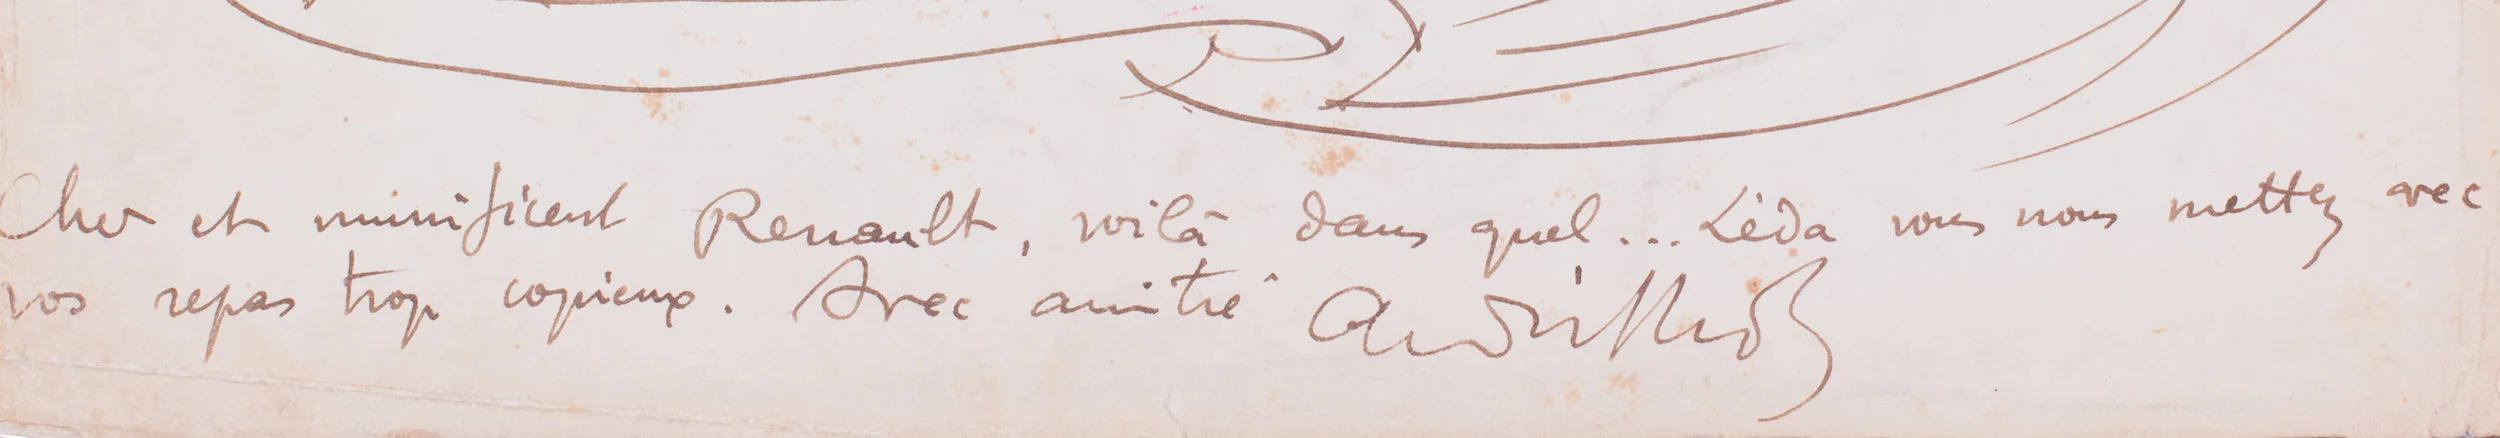 Cher et munificent Renault, voilà dans quel... Léda vous nous mettez avec
vos repas trop copieux. Avec amitié